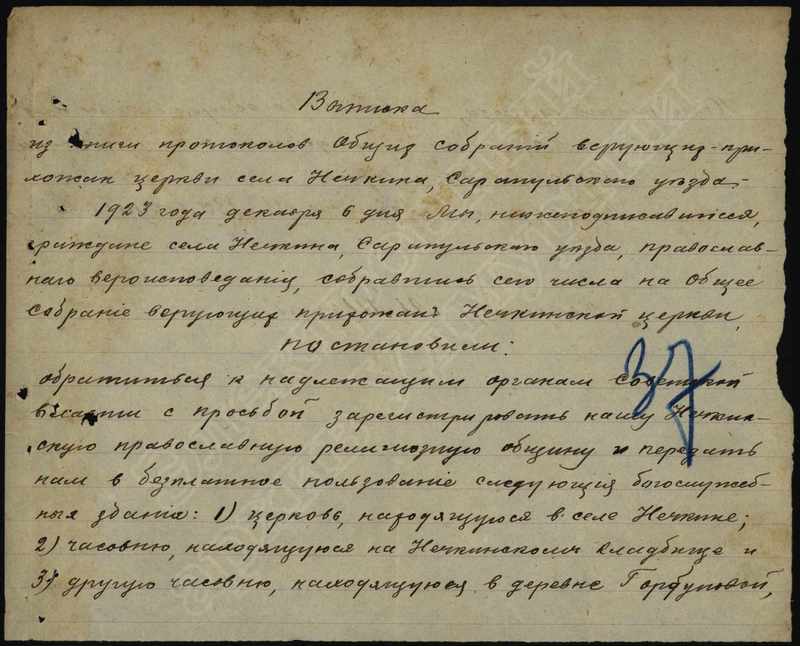 Выписка
из книги протоколов Общих собраний верующих-при-
хожан церкви села Нечкина, Сарапульского уезда.
1923 года декабря 6 дня Мы, нижеподписавшиеся,
граждане села Нечкина, Сарапульского уезда, православ-
наго вероисповедания, собравшись сего числа на Общее
собрание верующих прихожан Нечкинской церкви,
постановили:
37
обратиться к надлежащим органам Советской
власти с просьбой зарегистрировать нашу Нечкин-
скую православную религиозную общину и передать
нам в безплатное пользованіе следующія богослужеб-
ныя зданія: 1) церковь, находящуюся в селе Нечкине;
2) часовню, находящуюся на Нечкинском кладбище и
3) другую часовню, находящуюся в деревне Горбуновой,